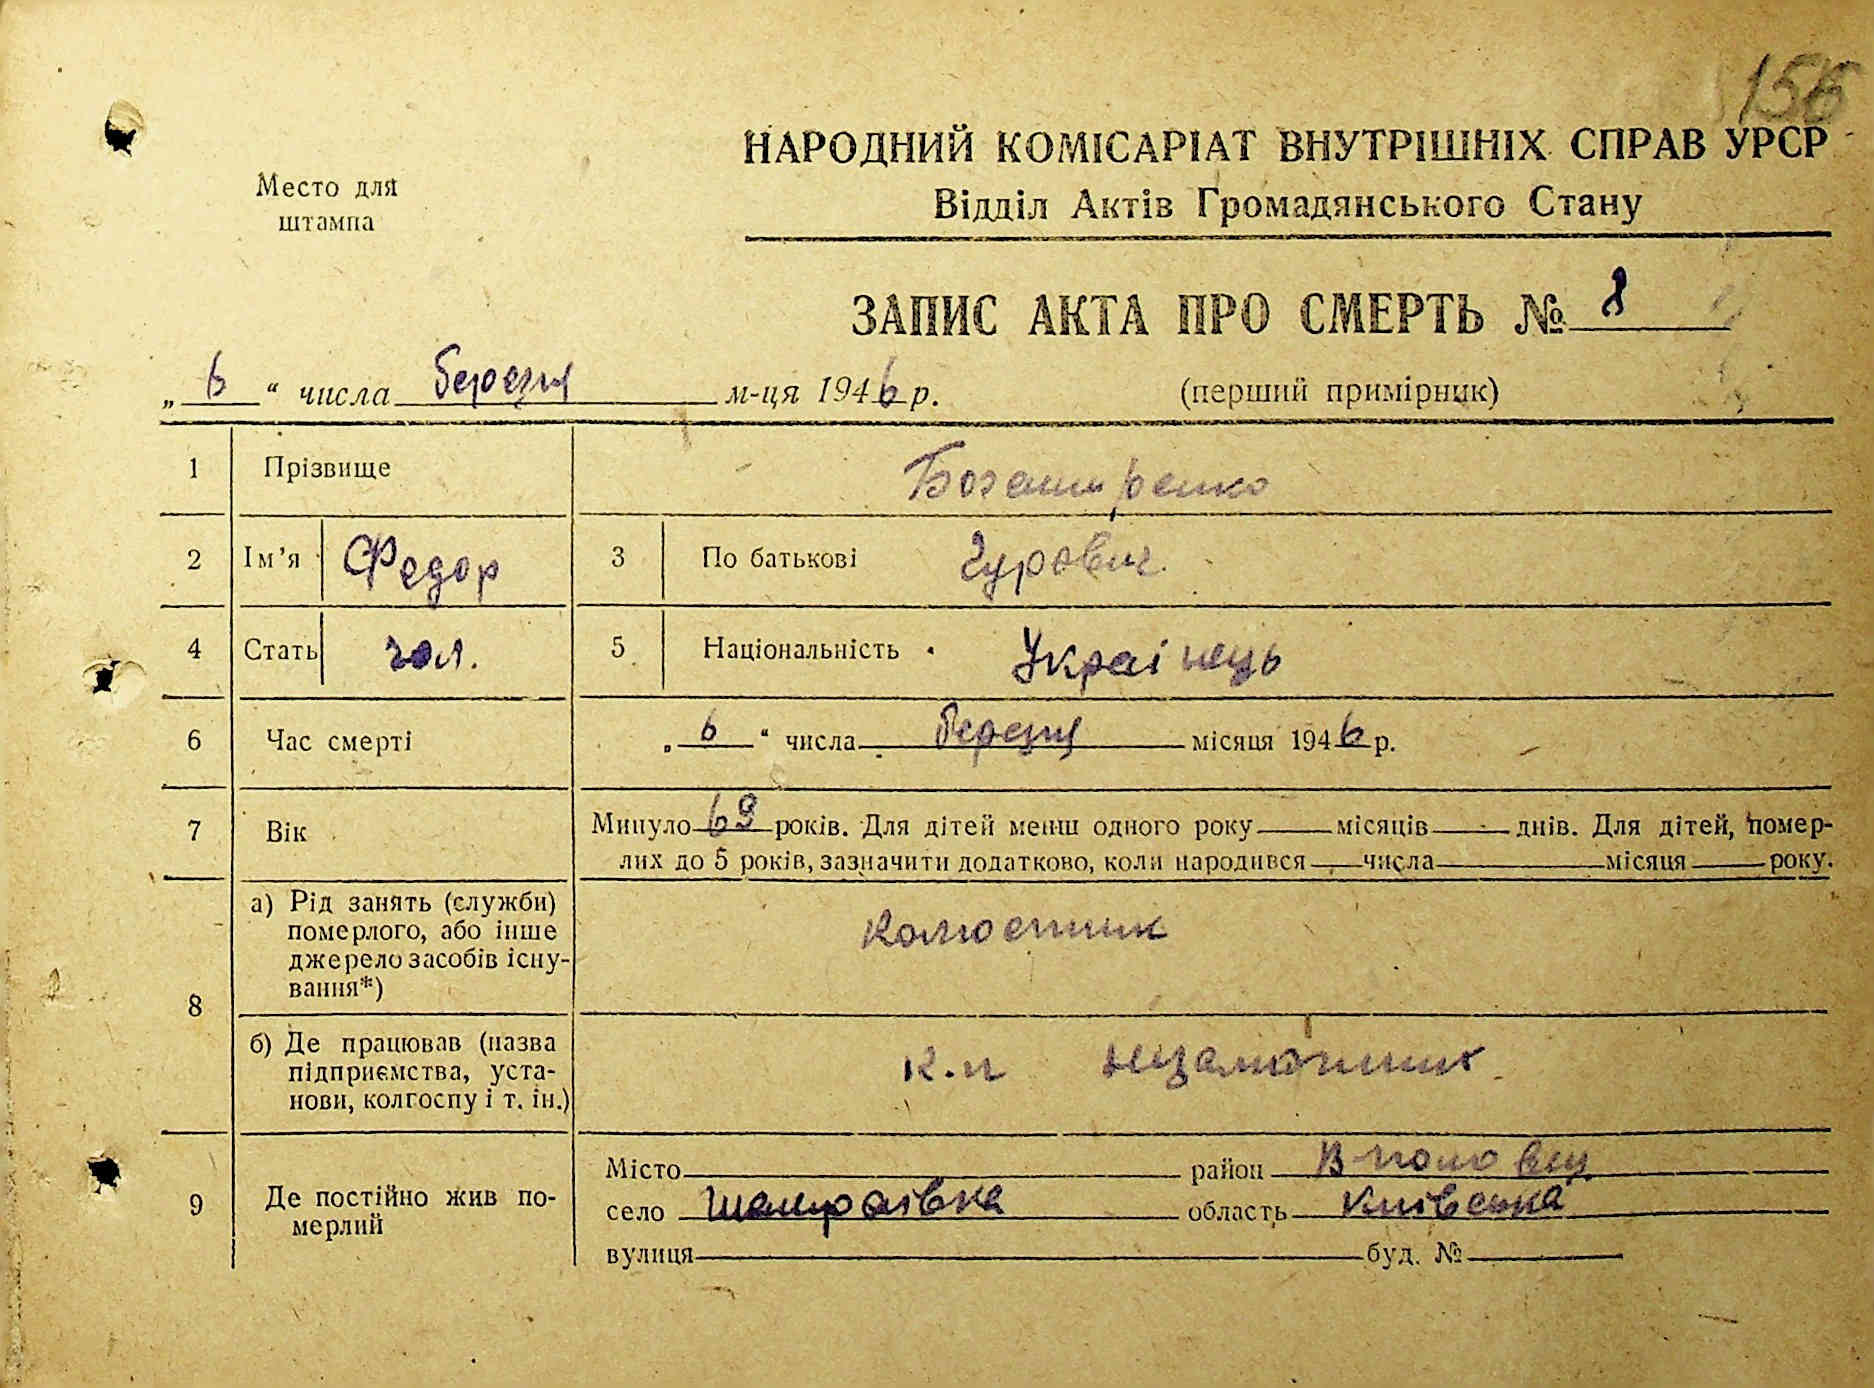 156
Место для
штампа
НАРОДНИЙ КОМІСАРІАТ ВНУТРІШНІХ СПРАВ УРСР
Відділ Актів Громадянського Стану
ЗАПИС АКТА ПРО СМЕРТЬ № 8
„ 6 “ числа березня м-ця 1946 р. (перший примірник)
1 Прізвище Богатиренко
2 Ім’я Федор 3 По батькові Гурович
4 Стать чол. 5 Національність Українець
6 Час смерті „ 6 “ числа березня місяця 1946 р.
7 Вік Минуло 69 років. Для дітей менш одного року місяців днів. Для дітей, помер-
лих до 5 років, зазначити додатково, коли народився числа місяця року.
8 а) Рід занять (служби)
померлого, або інше
джерело засобів існу-
вання*)
колгоспник
б) Де працював (назва
підприємства, уста-
нови, колгоспу і т. ін.)
незаможник
9 Де постійно жив по-
мерлий
Місто район В-половец.
село Шамраївка область Київська
вулиця буд. №